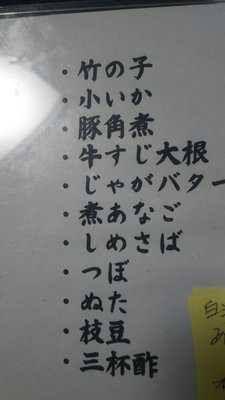 ・竹の子
・小いか
・豚角煮
・牛すじ大根
・じゃがバター
・煮あなご
・しめさば
・つぼ
・ぬた
・枝豆
・三杯酢